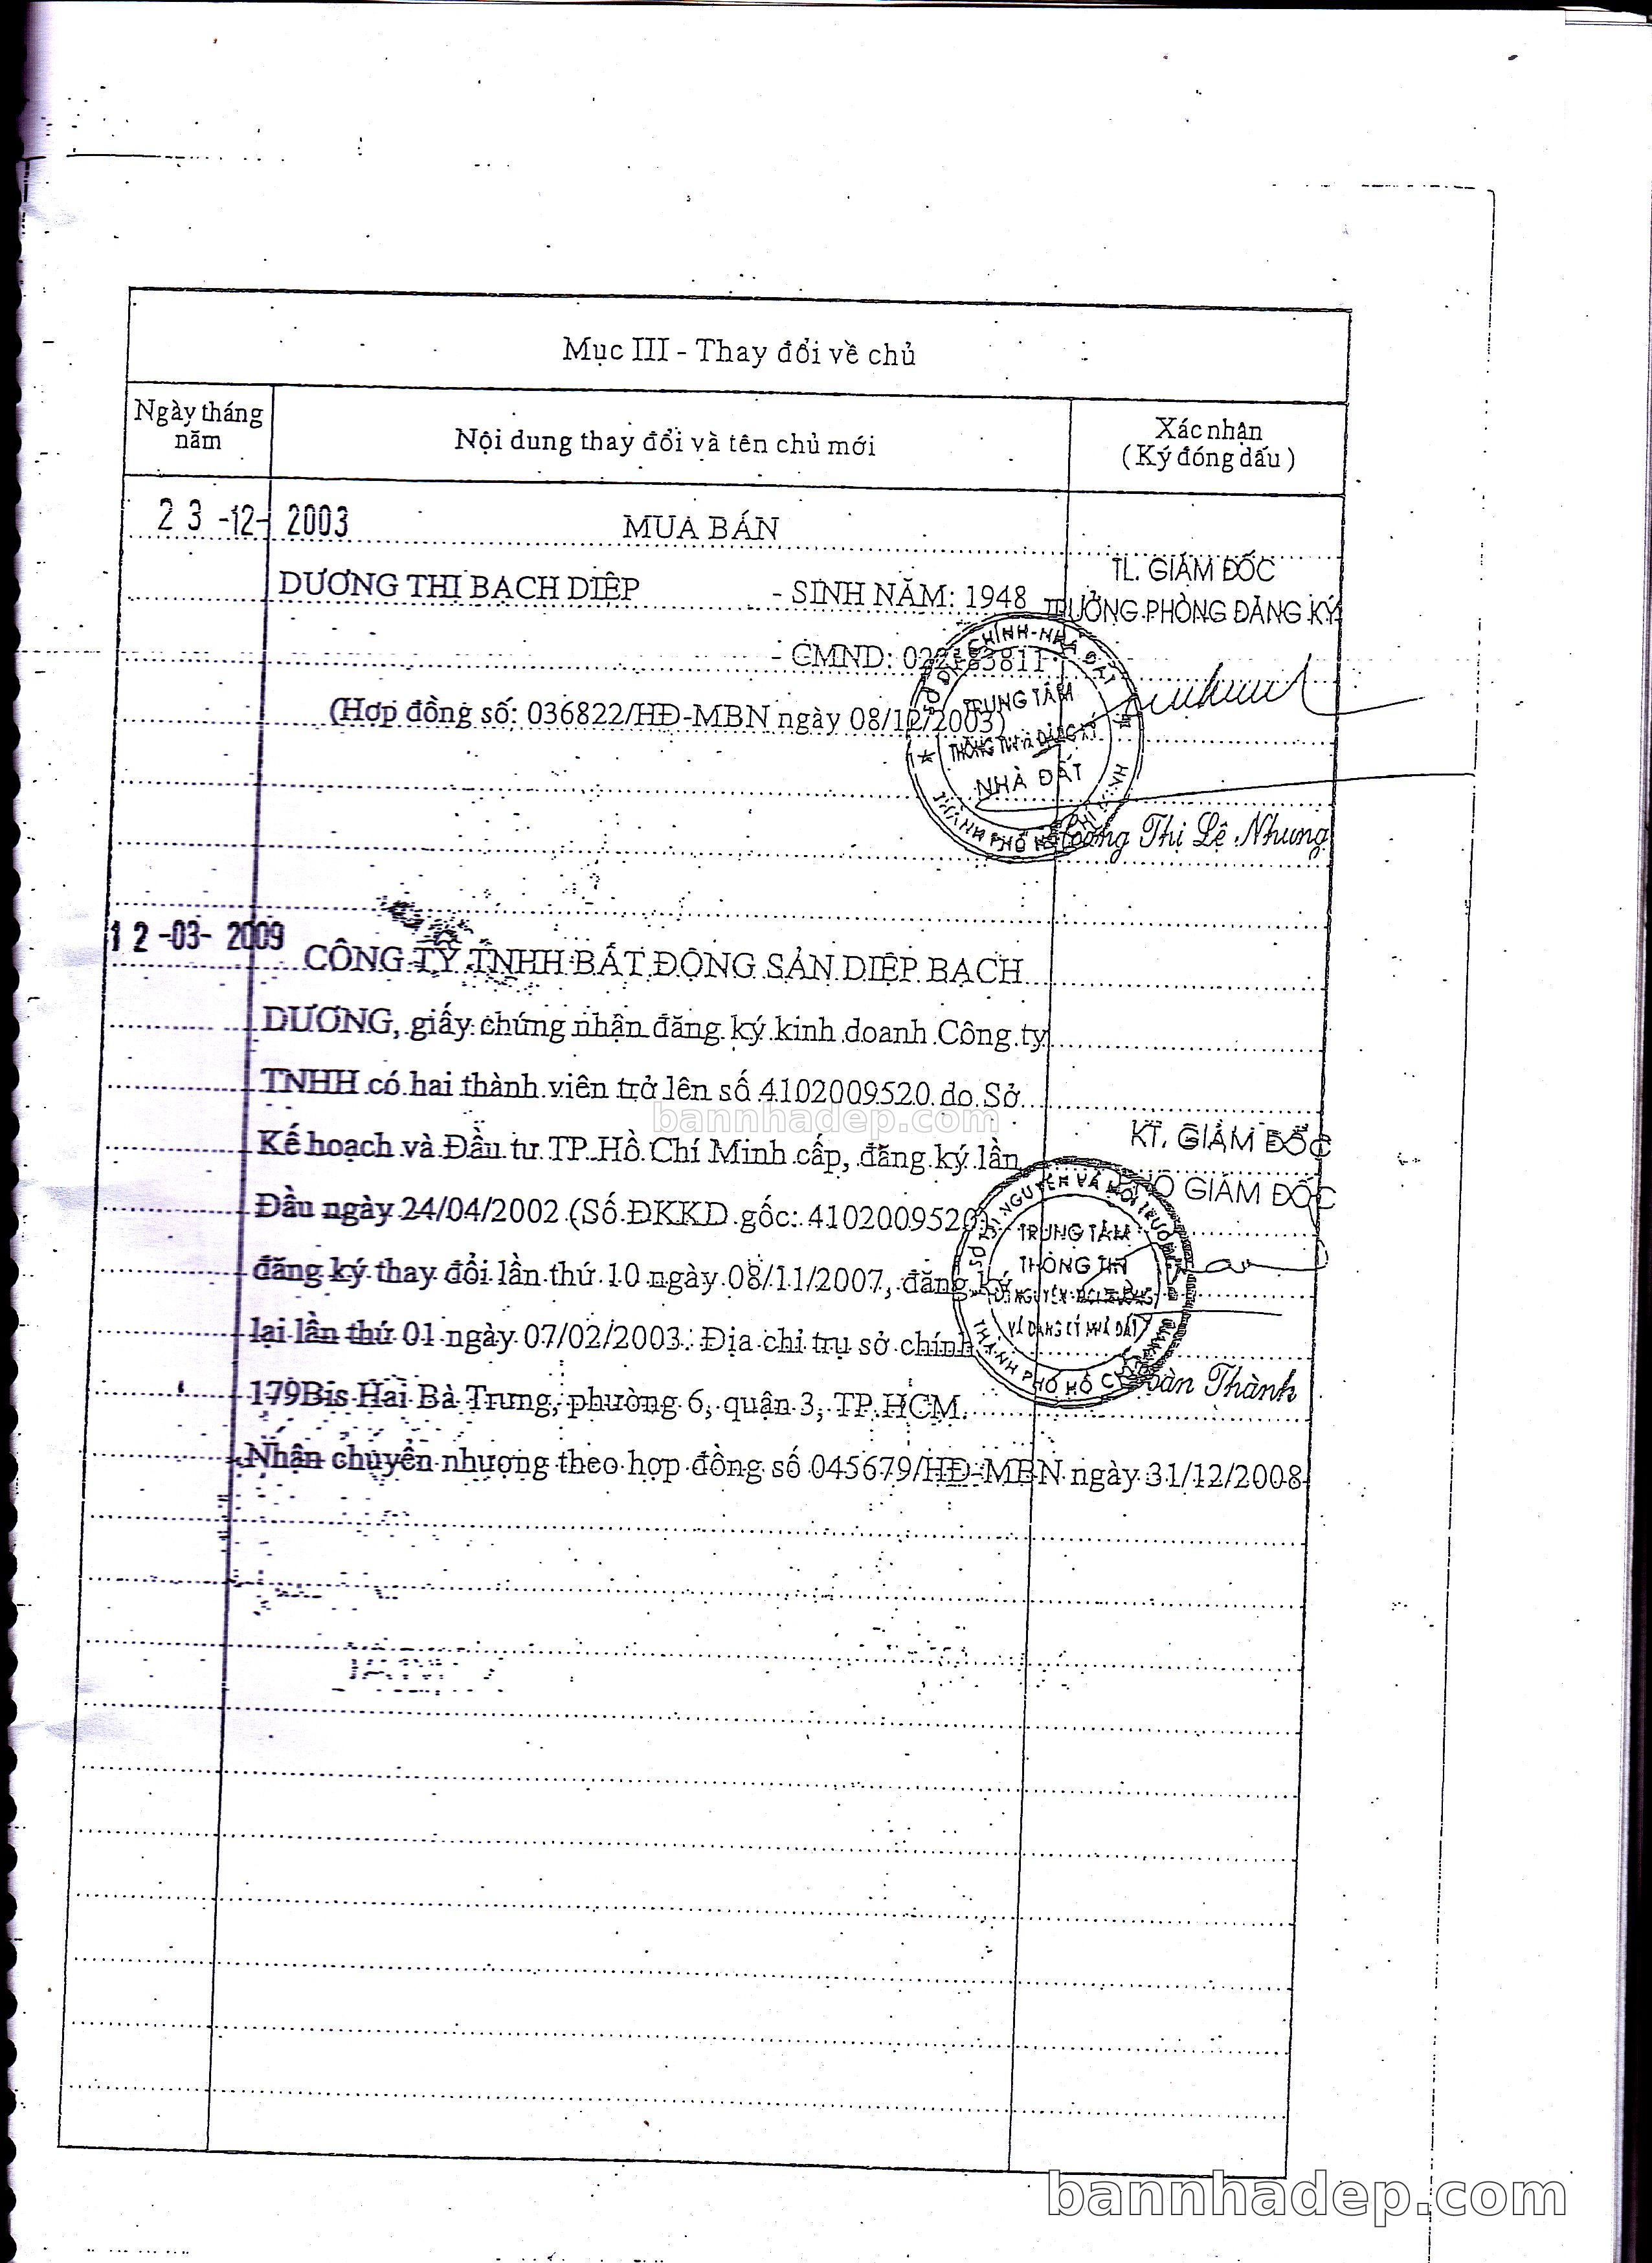 Mục III - Thay đổi về chủ
Ngày tháng năm
Nội dung thay đổi và tên chủ mới
Xác nhận
( Ký đóng dấu )
23 -12- 2003
MUA BÁN
DƯƠNG THỊ BẠCH DIỆP - SINH NĂM: 1948
TL. GIÁM ĐỐC
TRƯỞNG PHÒNG ĐĂNG KÝ
- CMND:
(Hợp đồng số: 036822/HĐ-MBN ngày 08/12/2003)
TRUNG TÂM
THÔNG TIN ĐĂNG KÝ
NHÀ ĐẤT
Hoàng Thị Lệ Nhung
12 -03- 2009
CÔNG TY TNHH BẤT ĐỘNG SẢN DIỆP BẠCH
DƯƠNG, giấy chứng nhận đăng ký kinh doanh Công ty
TNHH có hai thành viên trở lên số 4102009520 do Sở
bannhadep.com
Kế hoạch và Đầu tư TP. Hồ Chí Minh cấp, đăng ký lần
KT. GIÁM ĐỐC
PHÓ GIÁM ĐỐC
Đầu ngày 24/04/2002 (Số ĐKKD gốc: 4102009520),
đăng ký thay đổi lần thứ 10 ngày 08/11/2007, đăng ký
lại lần thứ 01 ngày 07/02/2003. Địa chỉ trụ sở chính
SỞ TÀI NGUYÊN VÀ MÔI TRƯỜNG
TRUNG TÂM
THÔNG TIN
TÀI NGUYÊN MÔI TRƯỜNG
VÀ ĐĂNG KÝ NHÀ ĐẤT
Toàn Thành
179Bis Hai Bà Trưng, phường 6, quận 3, TP.HCM.
Nhận chuyển nhượng theo hợp đồng số 045679/HĐ-MBN ngày 31/12/2008
bannhadep.com